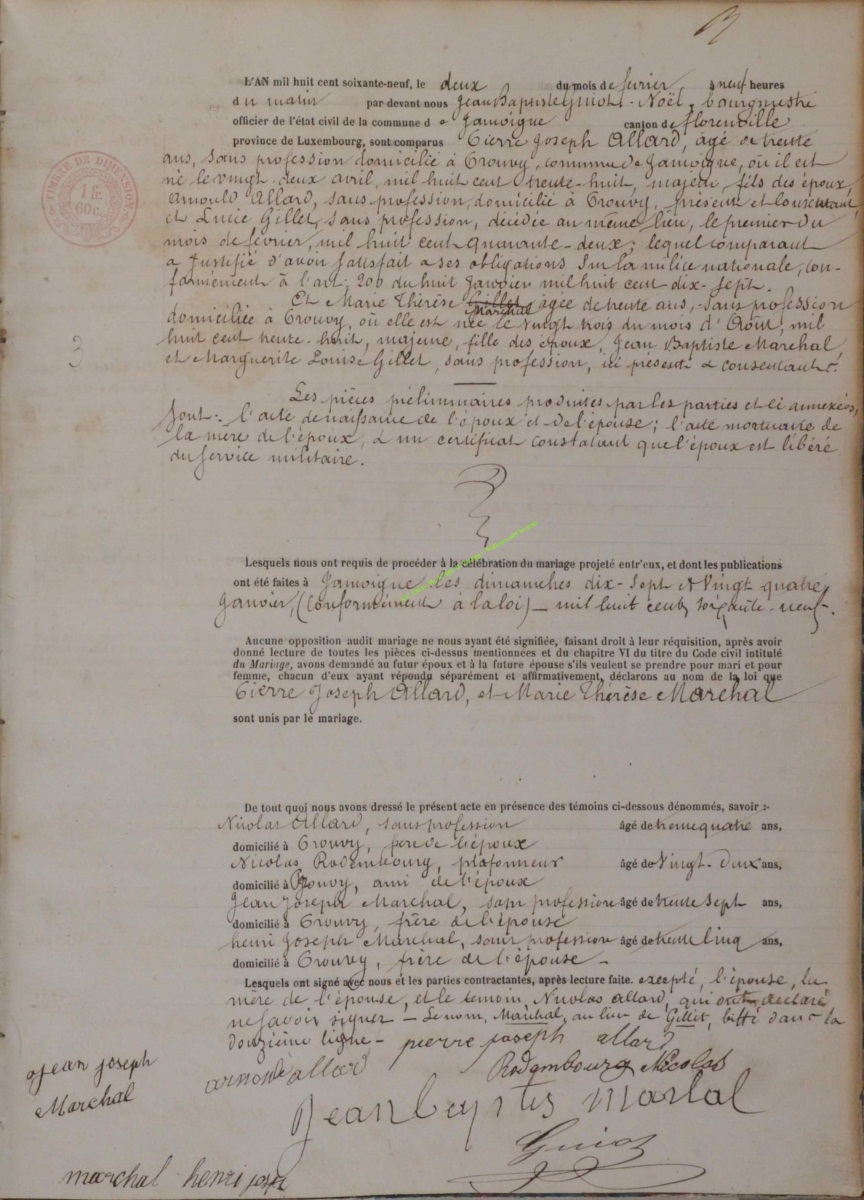 L'AN mil huit cent soixante-neuf, le deux du mois de février à neuf heures
du matin par devant nous Jean Baptiste Noël, bourgmestre
officier de l'état civil de la commune de Jamoigne canton de Florenville
province de Luxembourg, sont comparus Pierre Joseph Allard, âgé de trente
ans, sans profession domicilié à Prouvy, commune de Jamoigne, où il est
né le vingt deux avril, mil huit cent trente-huit, majeur, fils des époux,
Arnould Allard, sans profession, domicilié à Prouvy, présent et consentant,
et Lucie Gillet, sans profession, décédée au même lieu, le premier du
mois de février, mil huit cent quarante-deux; lequel comparant
a justifié d'avoir satisfait a ses obligations sur la milice nationale, con-
formément à l'art: 200 du huit Janvier mil huit cent dix-sept.
Et Marie Thérèse Gillet agée de trente ans, sans profession
Marchal
domiciliée à Prouvy, où elle est née le vingt trois du mois d'Août, mil
huit cent trente-huit, majeure, fille des époux, Jean Baptiste Marchal
et Marguerite Louise Gillet, sans profession, ici présents & consentants.
3
Les pièces préliminaires produites par les parties et ci annexées,
sont: l'acte de naissance de l'époux et de l'épouse; l'acte mortuaire de
la mère de l'époux, & un certificat constatant que l'époux est libéré
du service militaire.
TIMBRE DE DIMENSION
1 fr.
60c.
Lesquels nous ont requis de procéder à la célébration du mariage projeté entr'eux, et dont les publications
ont été faites à Jamoigne, les dimanches dix-sept et vingt quatre
Janvier, (Conformément à la loi) — mil huit cent soixante-neuf.
Aucune opposition audit mariage ne nous ayant été signifiée, faisant droit à leur réquisition, après avoir
donné lecture de toutes les pièces ci-dessus mentionnées et du chapitre VI du titre du Code civil intitulé
du Mariage, avons demandé au futur époux et à la future épouse s'ils veulent se prendre pour mari et pour
femme, chacun d'eux ayant répondu séparément et affirmativement, déclarons au nom de la loi que
Pierre Joseph Allard, et Marie Thérèse Marchal
sont unis par le mariage.
De tout quoi nous avons dressé le présent acte en présence des témoins ci-dessous dénommés, savoir :-
Nicolas Allard, sans profession âgé de trente quatre ans,
domicilié à Prouvy, frère de l'époux
Nicolas Rodembourg, plafonneur âgé de vingt-deux ans,
domicilié à Prouvy, ami de l'époux
Jean Joseph Marchal, sans profession âgé de trente sept ans,
domicilié à Prouvy, frère de l'épouse
henri Joseph Marchal, sans profession âgé de trente cinq ans,
domicilié à Prouvy, frère de l'épouse —
Lesquels ont signé avec nous et les parties contractantes, après lecture faite. excepté, l'épouse, la
mère de l'épouse, et le temoin, Nicolas Allard, qui ont déclaré
ne savoir signer — Le nom, Marchal, au lieu de Gillet, biffé dans la
douzième ligne — pierre joseph allard
Jean joseph
Marchal
arnould allard
Rodembourg Nicolas
Jean baptis marchal
Guiot
marchal henri josep